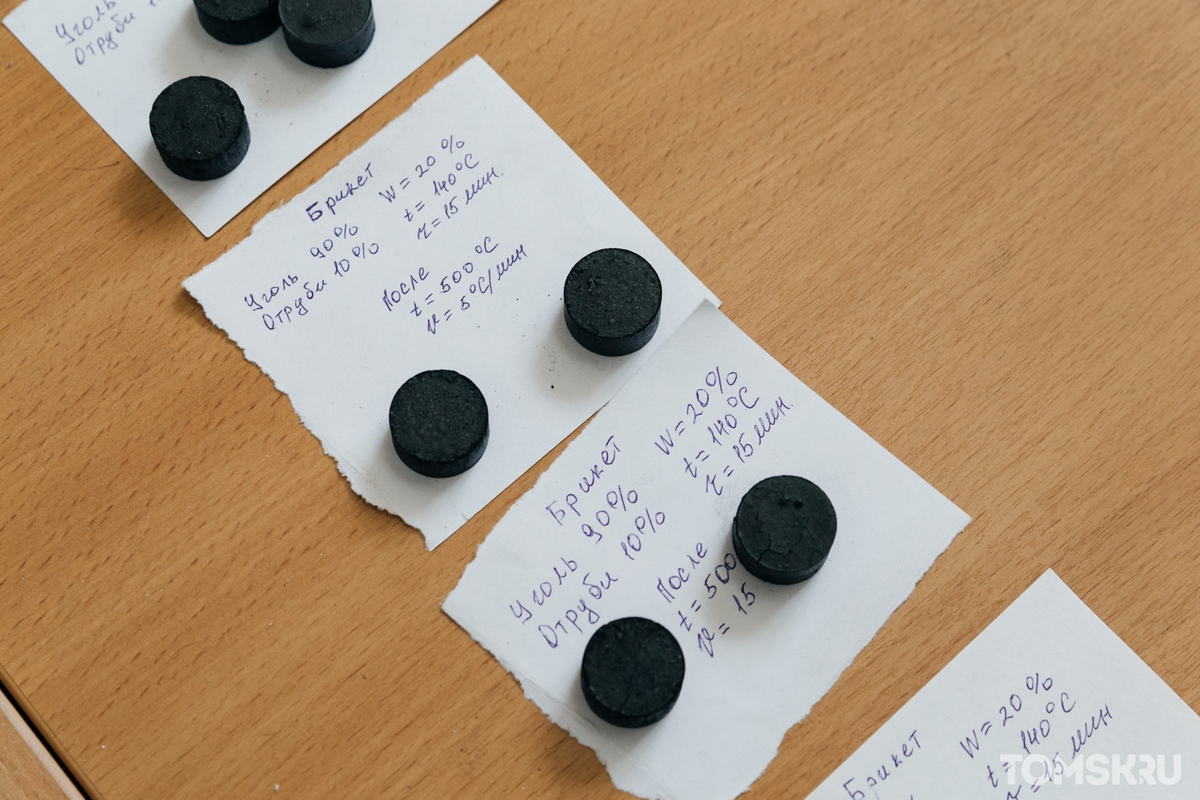 Уголь
Отруби
Брикет
Уголь 90%
Отруби 10%
W = 20 %
t = 140°C
τ = 15 мин.
После
t = 500 °C
v = 5°C/мин
Брикет
Уголь 90%
Отруби 10%
W = 20%
t = 140°C
τ = 15 мин.
После
t = 500
v = 15
Брикет
W = 20 %
t = 140°C
τ = 15 мин
TOMSK.RU